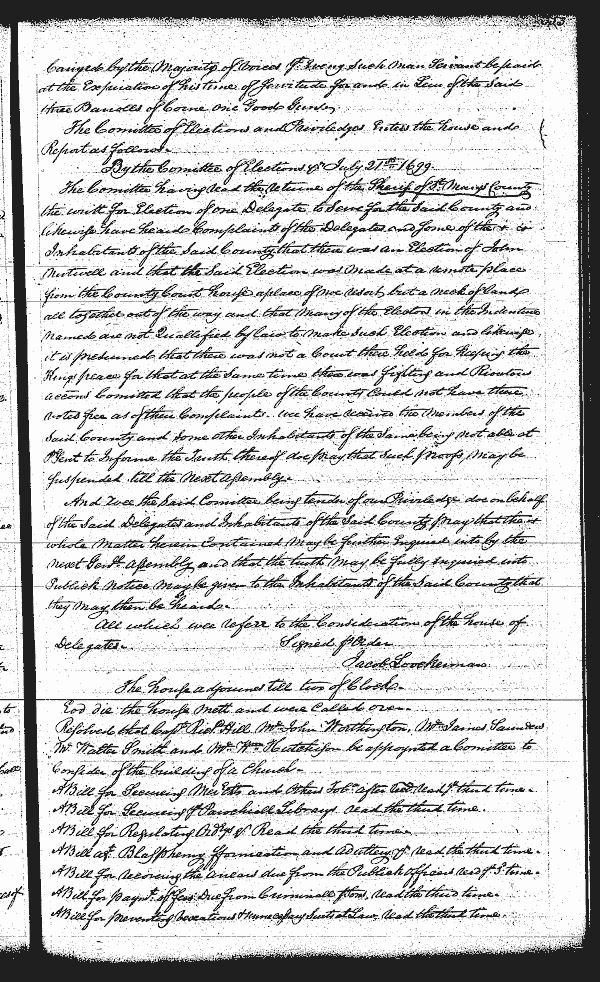 Carryed by the Majority of Voices yt. every such Man Servant be paid
at the Expiration of his time of Servitude for and in Lieu of the said
three Barrells of Corne one Good Gunn,
The Comittee of Elections and Priviledges Enters the house and
Report as follows.
By the Comittee of Elections &c July 21st. 1699.
The Comittee having read the returne of the Sherif of St. Marys County
the writt for Election of one Delegate to Serve for the said County and
likewise have heard Complaints of the Delegates and some of the
Inhabitants of the said County that there was an Election of John
Nutwell and that the said Election was made at a remote place
from the County Court house a place of noe resort but a neck of land
all together out of the way and that many of the Electors in the Indenture
named are not Quallified by law to make such Election and likewise
it is presumed that there was not a Court there held for keeping the
Kings peace for that at the same time there was fighting and Riotous
accons Comitted that the people of the County Could not have there
votes free as of their Complaints. we have receive the Members of the
said County and some other Inhabitants of the same being not able at
Psent to Informe the Truth thereof doe pray that such proofs may be
suspended till the next Assembly.
And wee the said Comittee being tender of our Priviledge doe on behalf
of the said Delegates and Inhabitants of the said County pray that the
whole Matter herein Contained may be further Enquired into by the
next Genll. Assembly and that the truth may be fully enquired into
Publick Notice may be given to the Inhabitants of the said County that
they may then be heard.
All which wee referr to the Consideration of the house of
Delegates. Signed p Order
Jacob Loockerman
The house adjourned till two of Clock.
Eod die the house Mett and were Called over.
Resolved that Capt. Richd. Hill Mr. John Worthington, Mr. James Saunders
Mr. Walter Smith and Mr. Wm. Hutchison be appoynted a Comittee to
Consider of the building of a Church.
A Bill for Securing Merchts and others Tobo. after recd. read ye third time.
A Bill for Securing ye Parochiall Librarys read the third time.
A Bill for Regulating Ordrys &c Read the third time.
A Bill agt. Blasphemy fornication and Adultery &c read the third time.
A Bill for recovering the arrears due from the Publick officers red ye 3d. time.
A Bill for paymt. of fees due from Criminall psons, read the third time.
A Bill for preventing vexations & unnecessary Suits at Law read the third time.